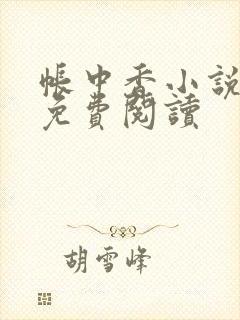 帳中香小說
免費閱讀
胡雪峰